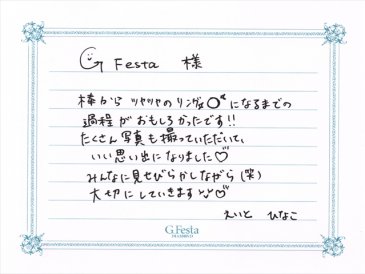 G Festa 様
棒から ツヤツヤの リングになるまでの
過程が おもしろかったです!!
たくさん写真も撮っていただいて、
いい思い出になりました♡
みんなに見せびらかしながら(笑)
大切にしていきます♡
えいと ひなこ
G.Festa